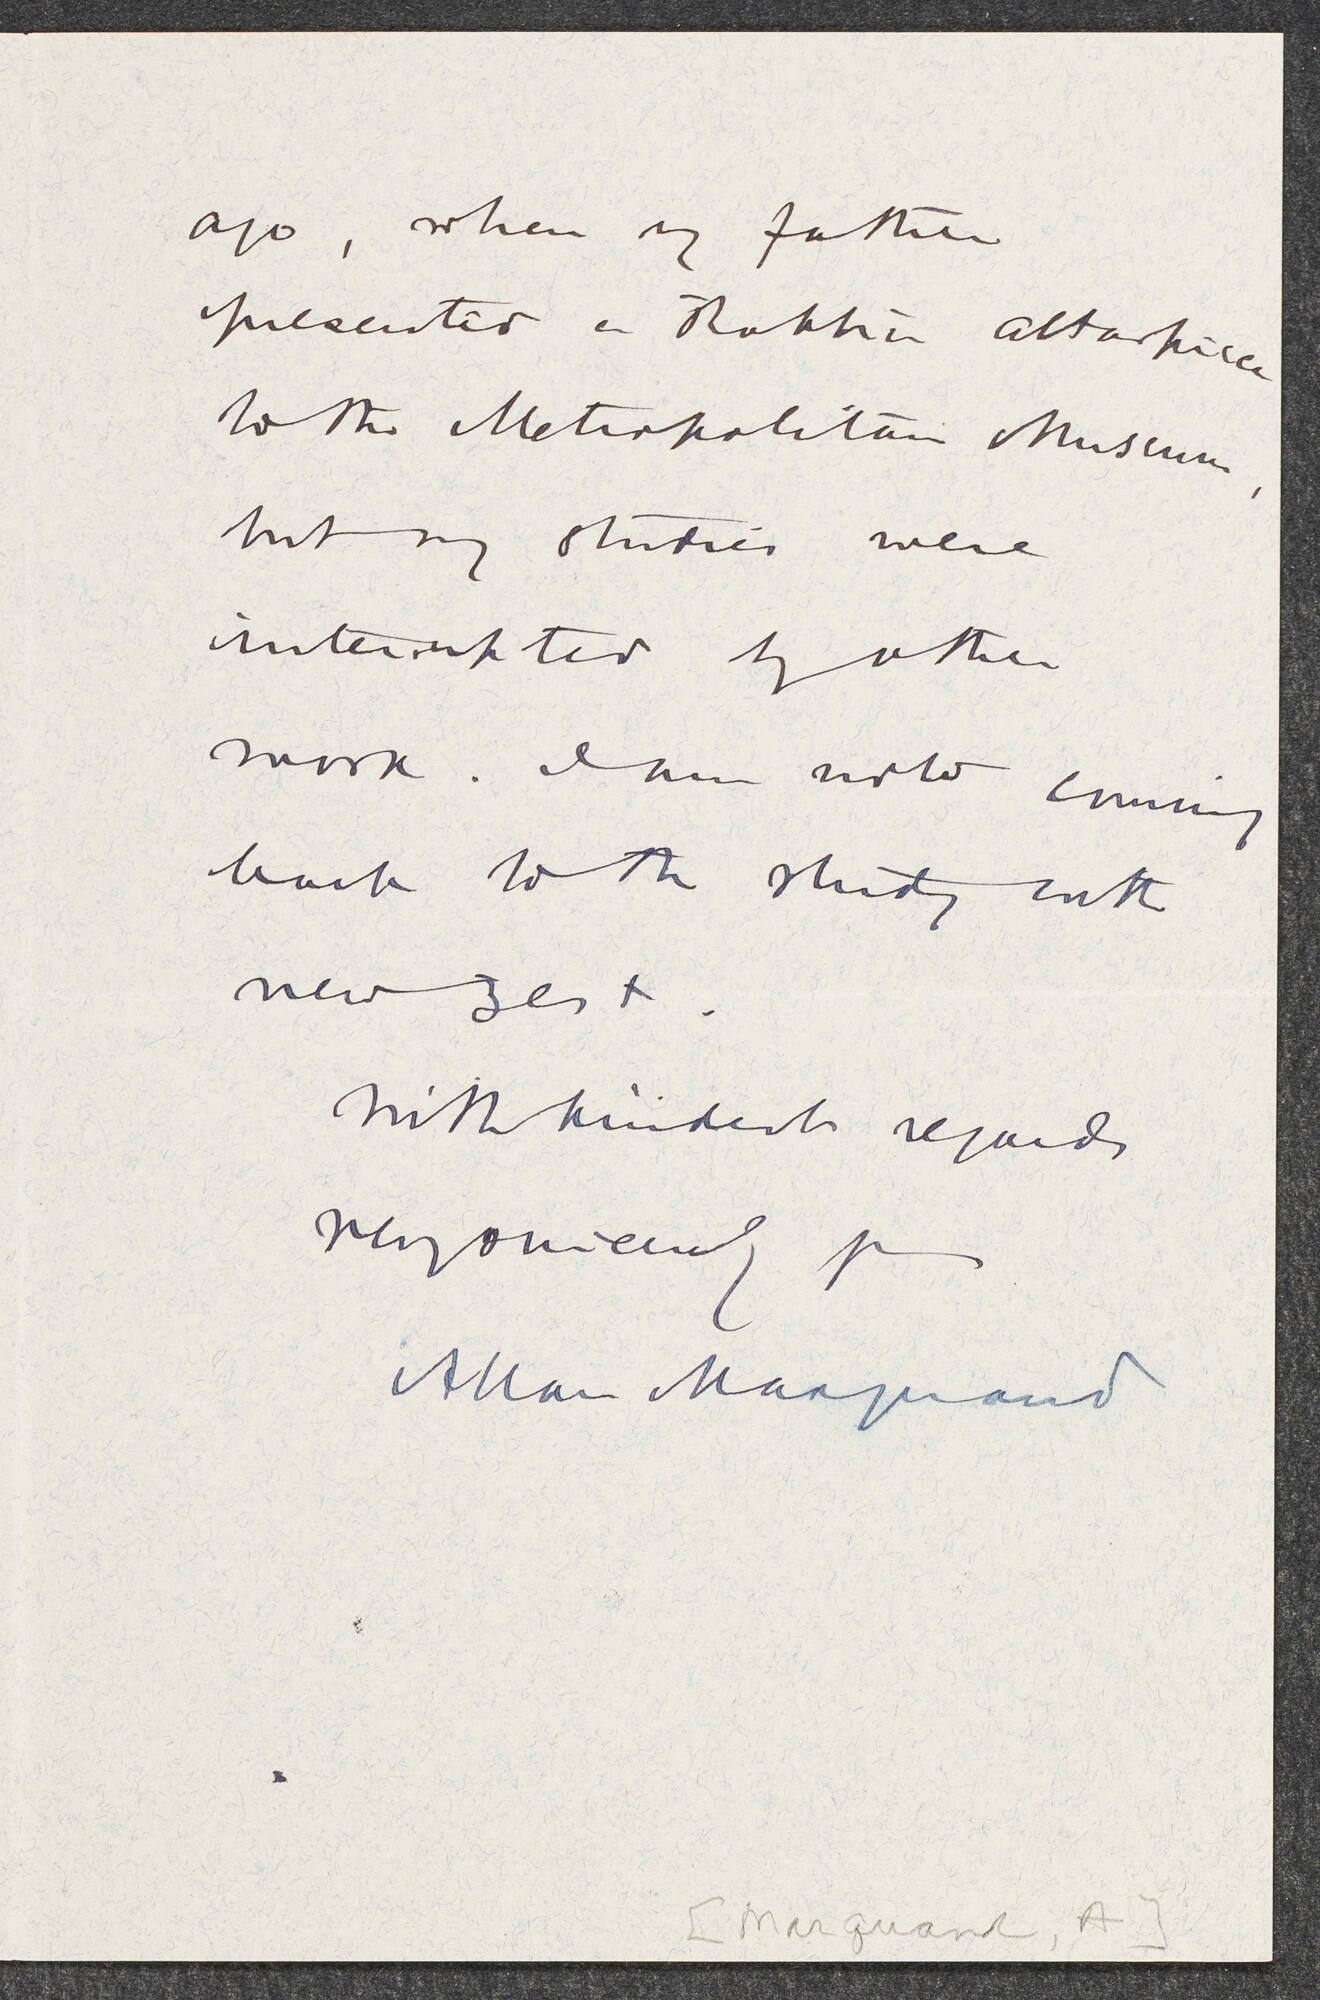 ago, when my father
presented a Robbia altarpiece
to the Metropolitan Museum,
but my studies were
interrupted by other
work. I am now coming
back to the study with
new zest.
With kindest regards
very sincerely yours
Allan Marquand
[Marquand, A]